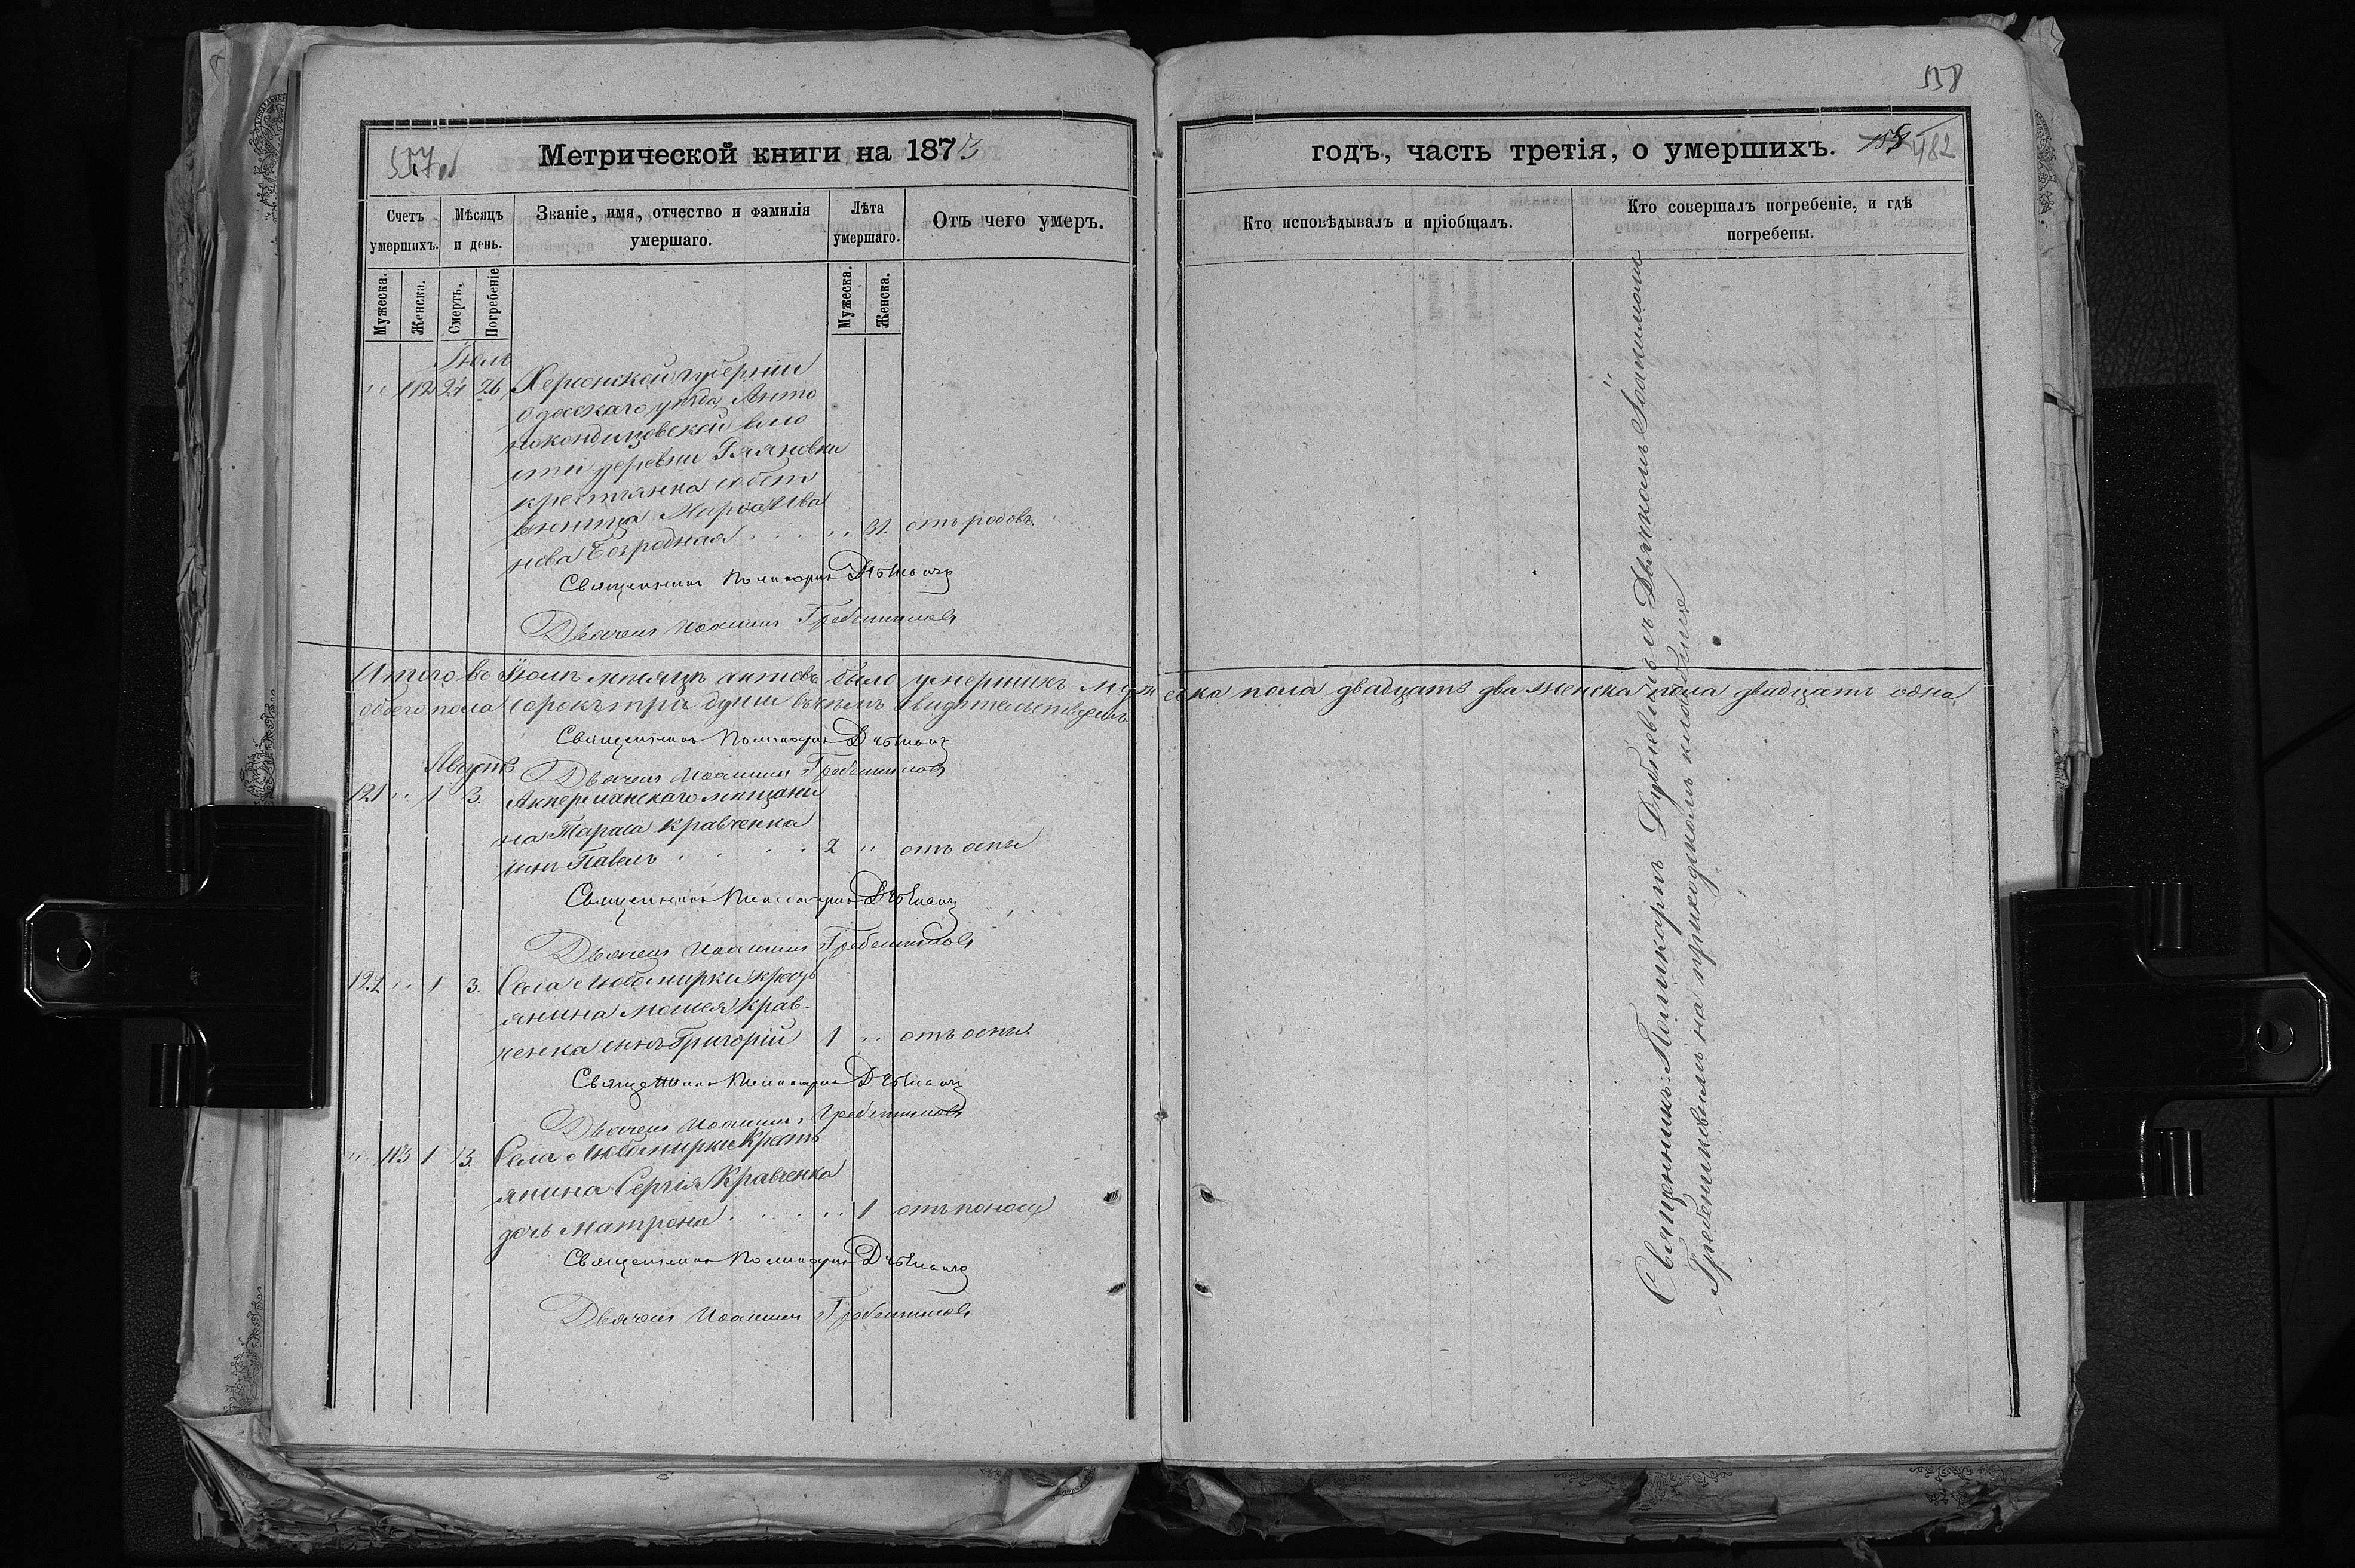 558
557
Метрической книги на 1873
годъ, часть третія, о умершихъ.
482
Счетъ умершихъ.
Мѣсяцъ и день.
Званіе, имя, отчество и фамилія умершаго.
Лѣта умершаго.
Отъ чего умеръ.
Кто исповѣдывалъ и пріобщалъ.
Кто совершалъ погребеніе, и гдѣ погребены.
Мужеска.
Женска.
Смерть.
Погребеніе
Мужеска.
Женска.
Іюль
112 24 26 Херсонской губерніи
Одесскаго уѣзда Анто
нокондинцовской воло
сти деревни
крестьянка собст
венница Марѳа Ива
нова Безродная 31. отъ родовъ.
Священникъ Поликарпъ
Дьячекъ Иоакимъ Гребенниковъ
Итого въ Іюлѣ мѣсяцѣ актовъ было умершихъ мужеска пола двадцать два женска пола двадцать одна
обоего пола сорокъ три души въ чемъ свидѣтельствуемъ
Священникъ Поликарпъ
Дьячекъ Иоакимъ Гребенниковъ
Августъ
121 1 3. Аккерманскаго мѣщани
на Тараса Кравченка
сынъ Павелъ 2 отъ оспы
Священникъ Поликарпъ
Дьячекъ Иоакимъ Гребенниковъ
122 1 3. Села Любомирки кресть
янина Моисея Крав-
ченка сынъ Григорій 1 отъ оспы.
Священникъ Поликарпъ
Дьячекъ Иоакимъ Гребенниковъ
113 1 3. Села Любомирки Кресть
янина Сергія Кравченка
дочь Матрона 1 отъ поносу
Священникъ Поликарпъ
Дьячекъ Иоакимъ Гребенниковъ
Священникъ Поликарпъ съ Дьячкомъ Іоакимомъ
Гребенниковымъ на приходскомъ кладбищѣ